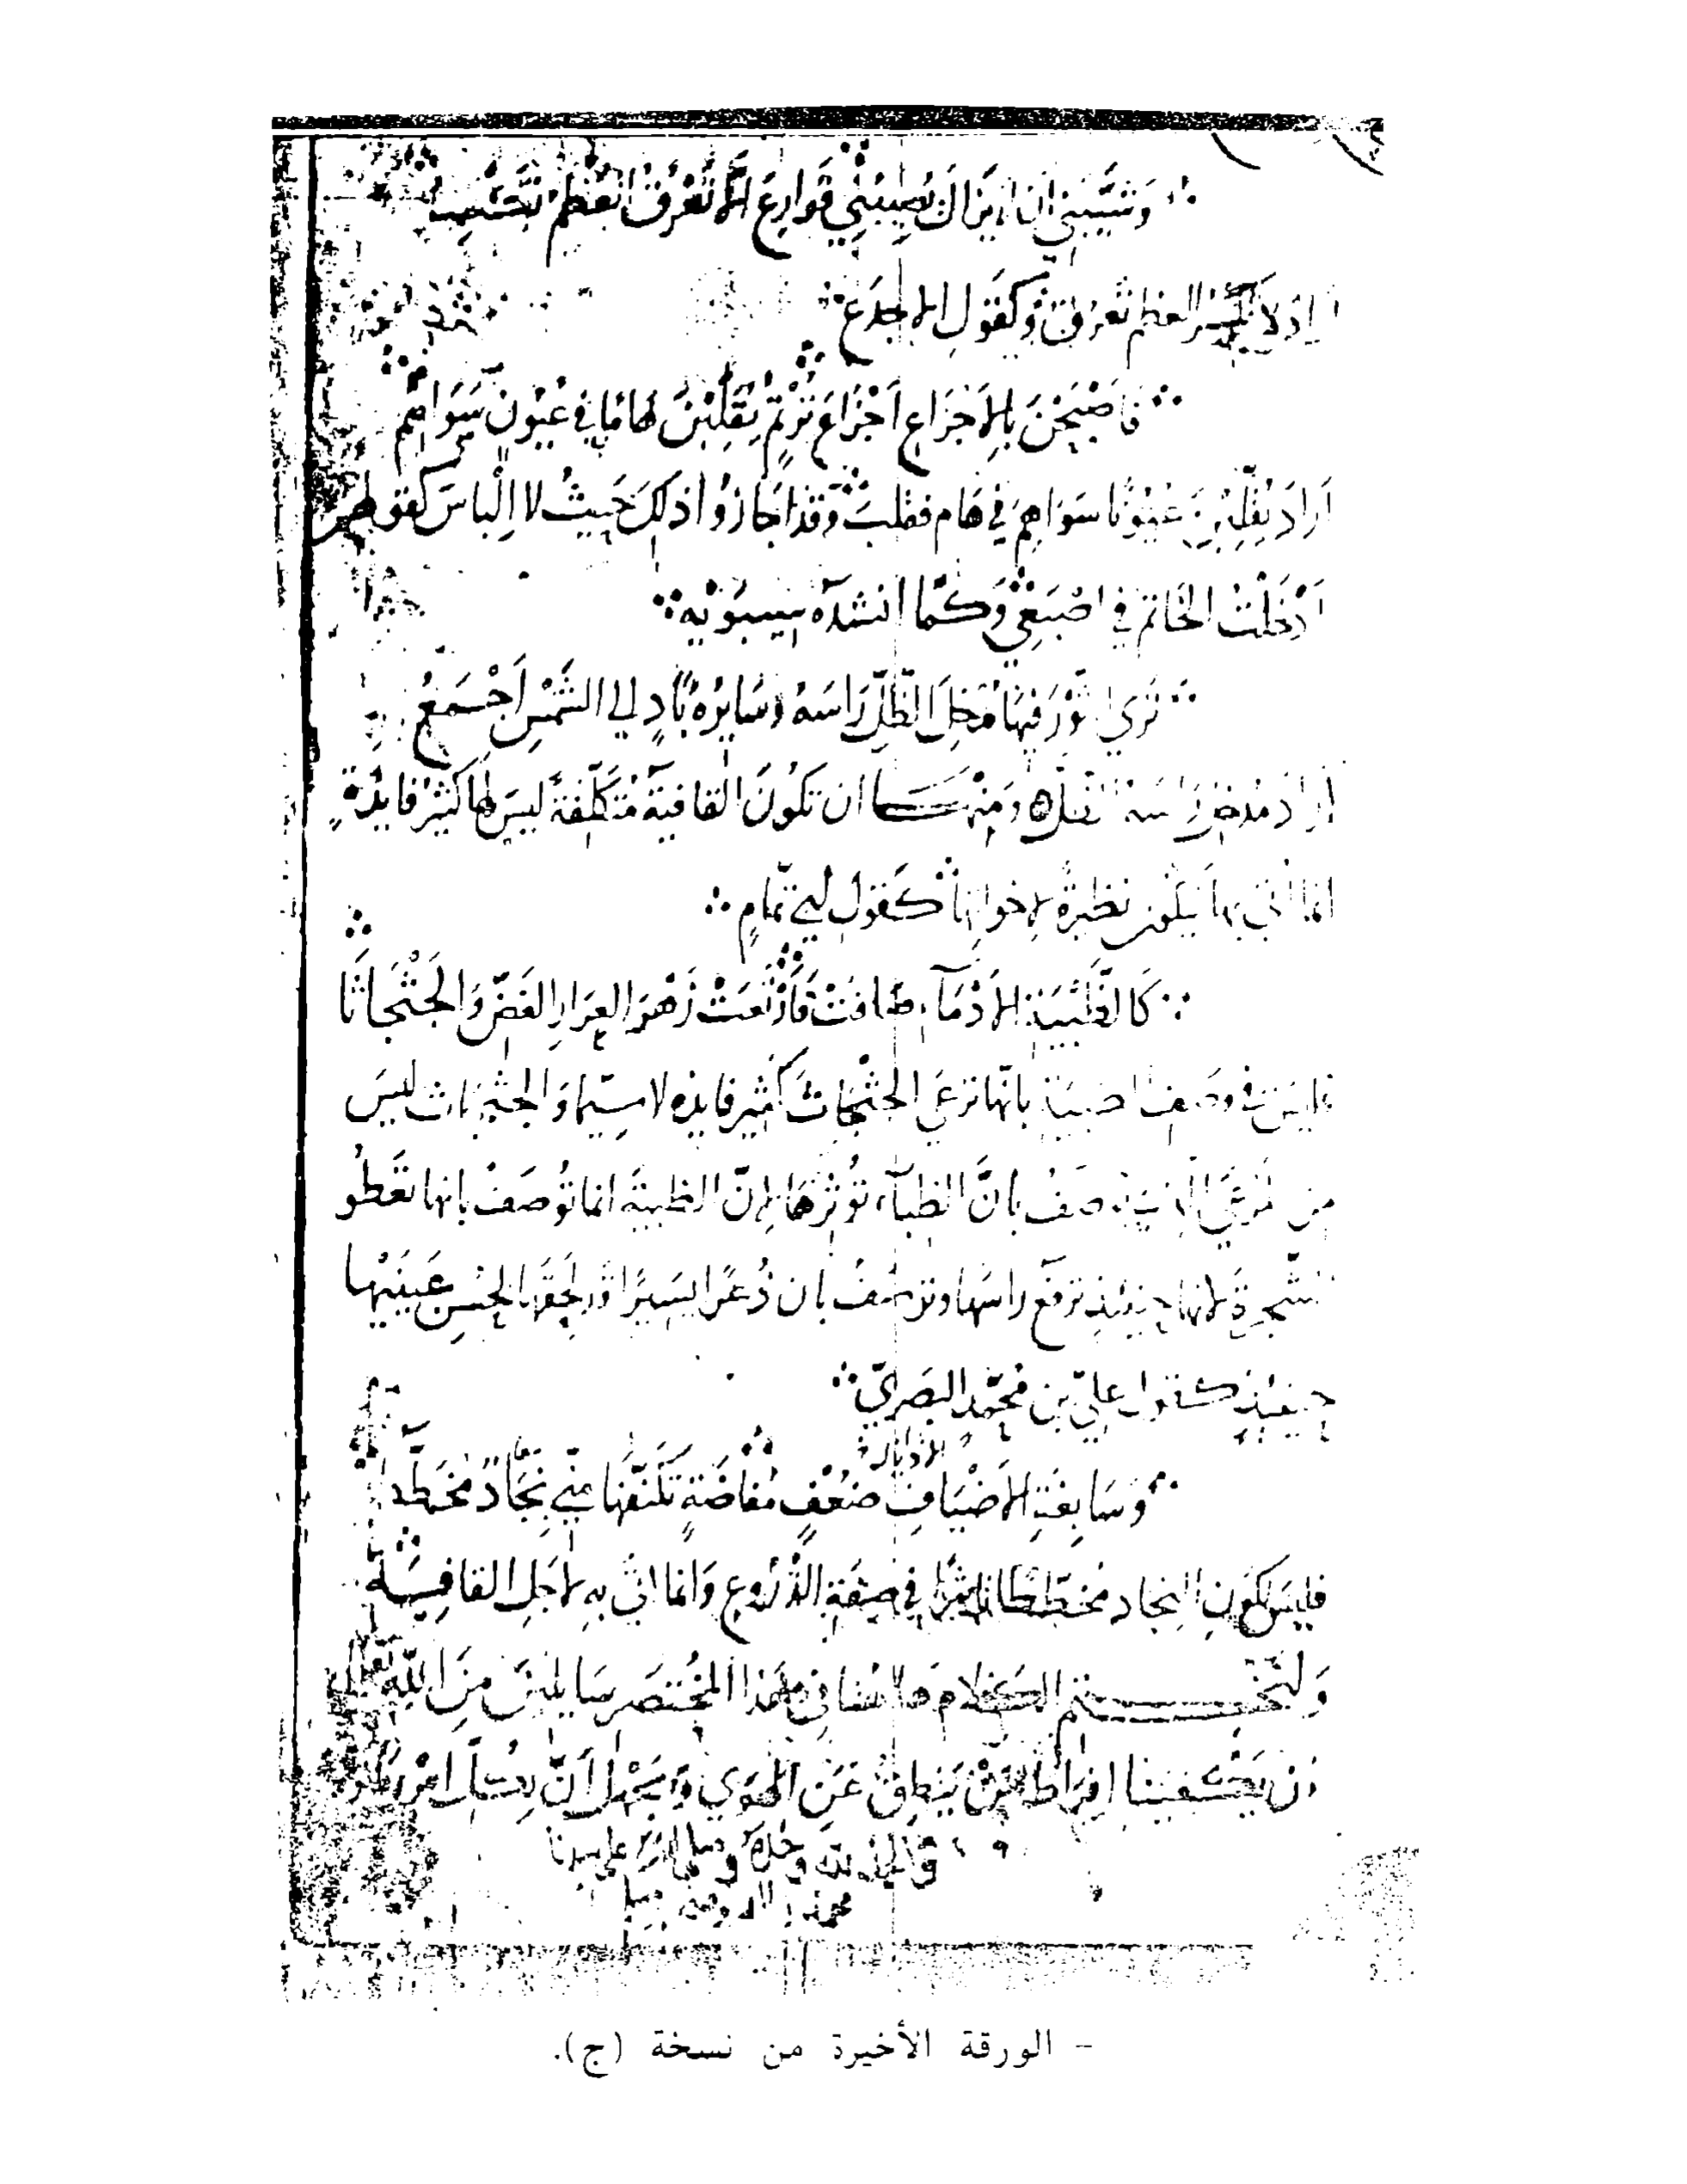 وَشَيَّبَني ان لا يَزَالَ يُصِيبُنِي قَوَارِعَ لا تَعْرُقُ العَظْمَ
اراد لا العظم تعرق وكَقولِ الاجدَع
فَاصْبَحْنَ بِالاَجزَاعِ اَجْزَاعَ تُرْتُمٍ يُقَلِّبْنَ هَامًا في عُيُونٍ سَوَاهِم
اَرادَ يُقَلِّبْنَ عُيُونًا سَوَاهِمَ في هَام فقلبَ وَقد اجَازُوا ذلِكَ حَيثُ لا اِلْباسَ كقولهم
اَدْخَلْتُ الخَاتمَ في اصْبَعِي وَكَمَا انشدَهُ سِيبَوَيْهِ
تَرَى الثَّوْرَ فِيهَا مُدْخِلَ الظِّلِّ رَاسَهُ وسَايِرُهُ بَادٍ الى الشَّمْسِ اَجْمَعُ
ارادَ مُدخِل رَاسَهُ الظل وَمِنْهــا ان تكُونَ القافيَةُ مُتكَلّفَةً ليسَ لها كَثيرُ فايدَةٍ
انما اتى بها لِتكون نظيرةً لاِخواتها كَقولِ ابي تمّامٍ
كَالظَّبْيَةِ الاَدْمَآءِ صَافَتْ فَارْتَعَتْ زَهْرَ العَرَارِ الغَضِّ وَالجَثْجَاثَا
فليسَ في وصَفِ الظبيَةِ بانّها ترْعَى الجَثْجَاثَ كثير فايده لا سِيّما وَالجثجَاث ليسَ
من المَرْعَى الذي يُوصَفُ بانَّ الظبآءَ تُؤثِرُهَا لانّ الظبيَةَ انما تُوصَفُ بانها تَعْطُو
الشَّجَرةَ لانها حِينئذٍ ترفَع راسَهَا وتوصَفُ بان ذُعْرًا يَسِيرًا قد لَحِقَهَا لحُسْنِ عَينَيْها
حِينئذٍ كقول عليّ بن مُحمّدٍ البَصَريّ
الاذيال
وَسَابِغَةِ الاَضْيَافِ ضعْفٍ مُفَاضَةٍ تَكَنَّفَهَا مِنّي نِجَادٌ مُخَطَّطُ
فليسَ لِكَونِ النِجاد مُخَطَّطًا تاثيرٌ في صِفَةِ الدُّرُوعِ وَانما اتى بهِ لاَجلِ القافِيَة
وَلنَخْــتِمِ الكَلامَ هاهُنا في هَذا المُخْتصَر سَايلينَ مِنَ اللّهِ تعالى
ان يَكفينا اِفرَاطَ مَنْ يَنطِقُ عَنِ الهَوَي وَيَجْهَل اَنَّ
وَالحمد لله وحده وصلى الله على سيدنا
محمد واله وصحبه وسلم
- الورقة الأخيرة من نسخة (ج).